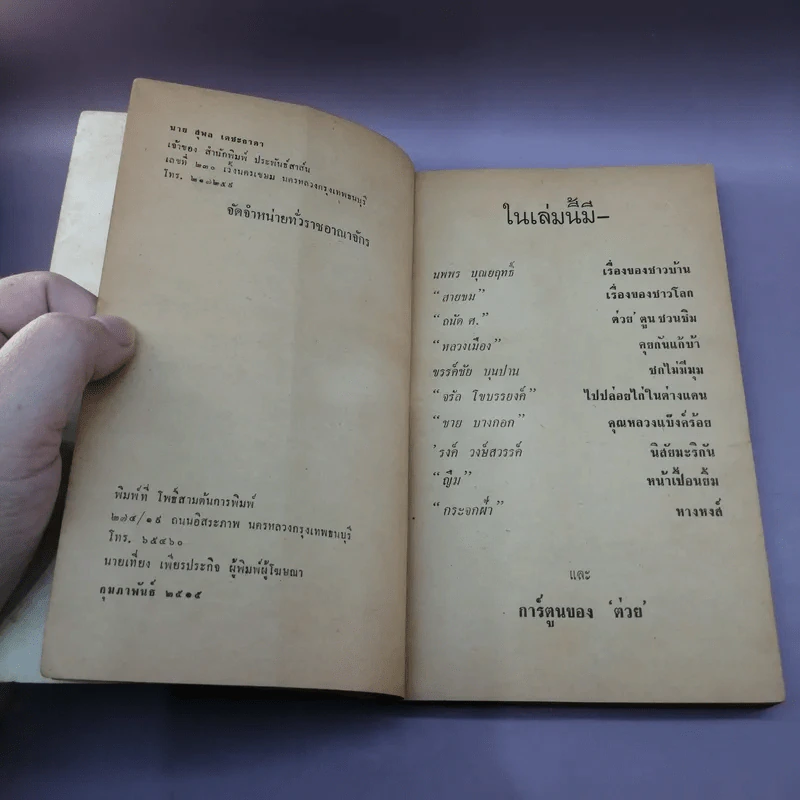 นาย สุพล เตชะธาดา
เจ้าของ สำนักพิมพ์ ประพันธ์สาส์น
เลขที่ ๒๓๐ เวิ้งนครเขษม นครหลวงกรุงเทพธนบุรี
โทร. ๒๑๗๒๕๙
จัดจำหน่ายทั่วราชอาณาจักร
พิมพ์ที่ โพธิ์สามต้นการพิมพ์
๒๗๕/๑๙ ถนนอิสระภาพ นครหลวงกรุงเทพธนบุรี
โทร. ๖๕๔๖๐
นายเที่ยง เพียรประกิจ ผู้พิมพ์ผู้โฆษณา
กุมภาพันธ์ ๒๕๑๕
ในเล่มนี้มี–
นพพร บุณยฤทธิ์ เรื่องของชาวบ้าน
“สายขม” เรื่องของชาวโลก
“ถนัด ศ.” ต่วย' ตูน ชวนชิม
“หลวงเมือง” คุยกันแก้บ้า
ขรรค์ชัย บุนปาน ชกไม่มีมุม
“จรัล โขบรรยงค์” ไปปล่อยไก่ในต่างแดน
“ชาย บางกอก” คุณหลวงแบ๊งค์ร้อย
'รงค์ วงษ์สวรรค์ นิสัยมะริกัน
“ญิบ” หน้าเปื้อนยิ้ม
“กระจกฝ้า” หางหงส์
และ
การ์ตูนของ 'ต่วย'